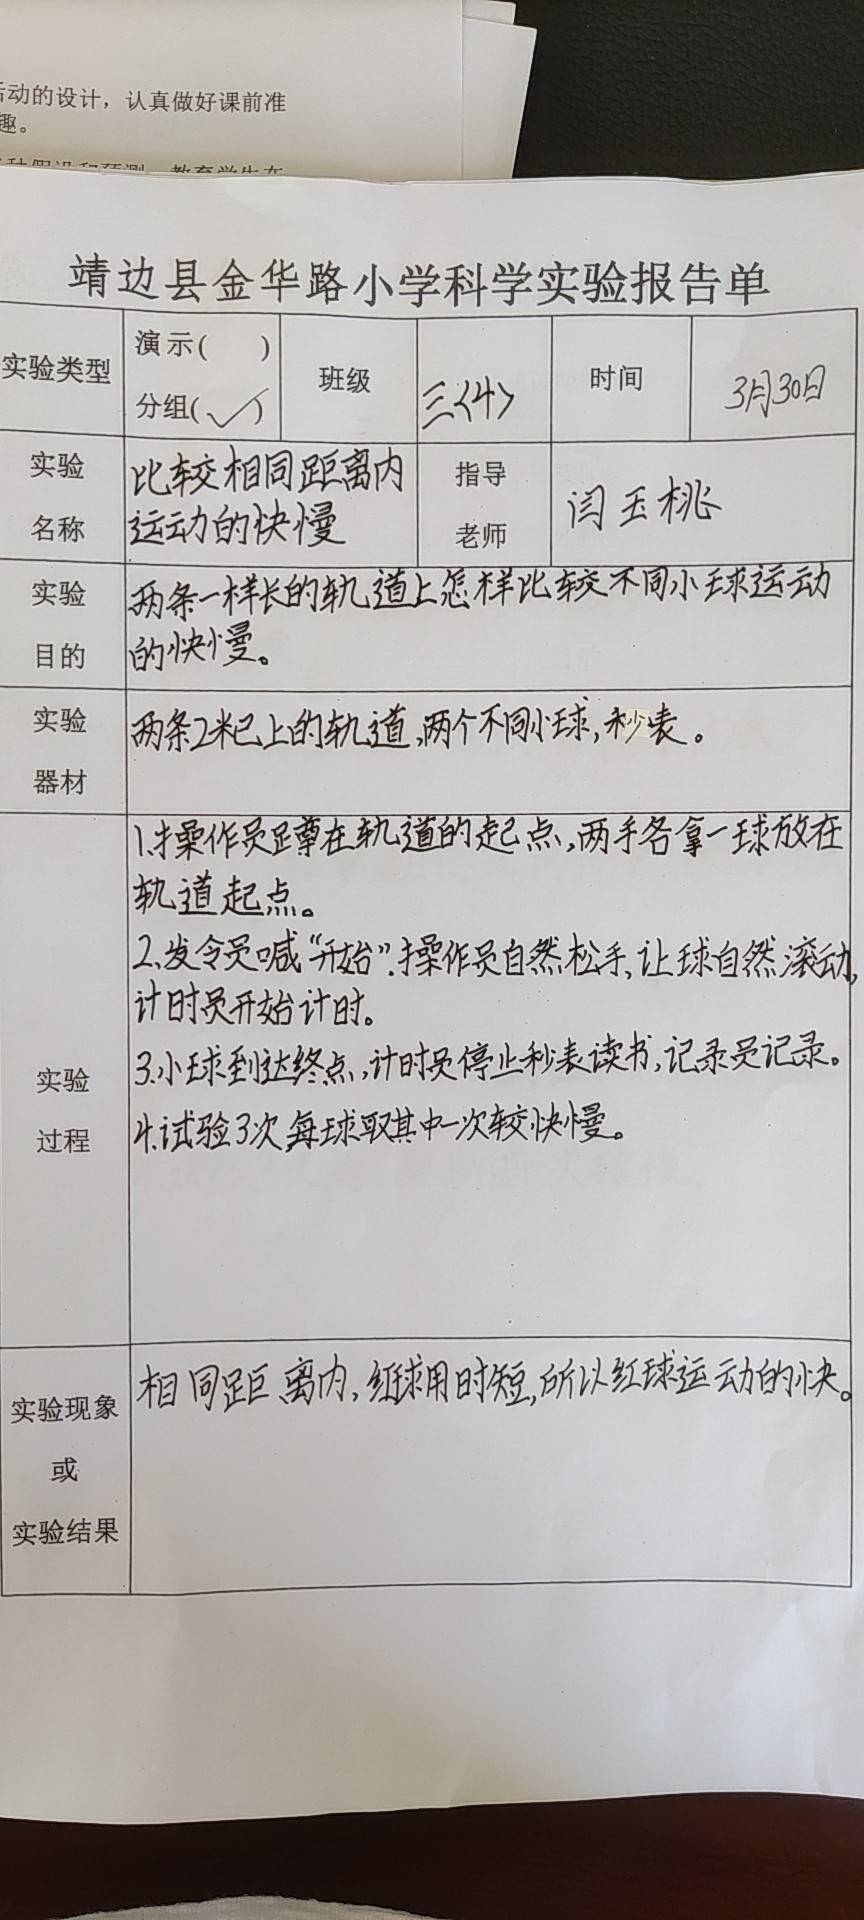 活动的设计，认真做好课前准
趣。
靖边县金华路小学科学实验报告单
实验类型
演示(　　)
分组(✓)
班级
三<4>
时间
3月30日
实验
名称
比较相同距离内
运动的快慢
指导
老师
闫玉桃
实验
目的
两条一样长的轨道上怎样比较不同小球运动
的快慢。
实验
器材
两条2米已上的轨道,两个不同小球,秒表。
实验
过程
1.操作员蹲在轨道的起点,两手各拿一球放在
轨道起点。
2、发令员喊“开始”.操作员自然松手,让球自然滚动,
计时员开始计时。
3.小球到达终点,计时员停止秒表读书,记录员记录。
4.试验3次每球取其中一次较快慢。
实验现象
或
实验结果
相同距离内,红球用时短,所以红球运动的快。